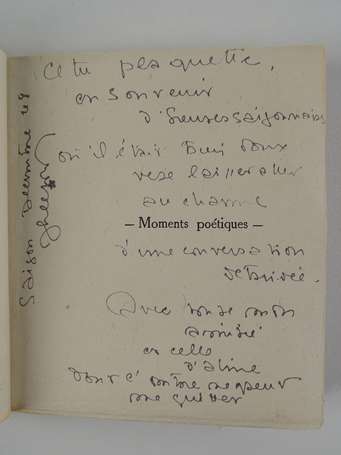 Cette plaquette,
en souvenir
d'heures saigonnaises
où il était bien doux
de se laisser aller
au charme
– Moments poétiques –
d'une conversation
Avec toute mon
amitié
et celle
d'aline
dont l' ombre ne peut
me quitter
Saigon Decembre 48